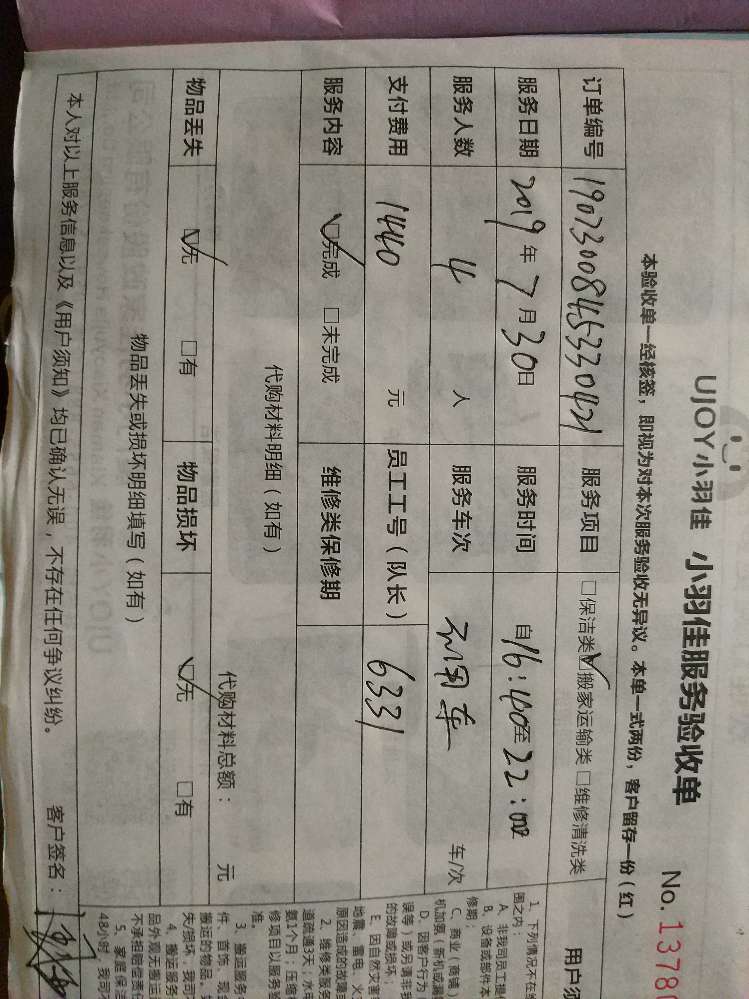 UJOY小羽佳 小羽佳服务验收单 No. 1378
本验收单一经核签，即视为对本次服务验收无异议。本单一式两份，客户留存一份（红）
订单编号 1907300845330421 服务项目 □保洁类 ☑搬家运输类 □维修清洗类
服务日期 2019年7月30日 服务时间 自16:40至22:00
服务人数 4 人 服务车次 车/次
支付费用 1440 元 员工工号（队长） 6331
服务内容 ☑完成 □未完成 维修类保修期
代购材料明细（如有）
代购材料总额： 元
物品丢失 ☑无 □有 物品损坏 ☑无 □有
物品丢失或损坏明细填写（如有）
本人对以上服务信息以及《用户须知》均已确认无误，不存在任何争议纠纷。 客户签名：
用户须
1、下列情况不在
围之内：
A、非我司员工提
B、设备或部件本
修期；
C、商业（商铺）
机加氨（新机或漏
D、因客户行为
误等）或另请非我
的故障或损坏；
E、因自然灾害
地震、雷电、火
原因造成的故障
2、维修类服务
道疏通3天；水电
氨1个月；压缩机
修项目以服务验
准。
3、搬运服务
件、首饰、现金
搬运的物品。
4、搬运服务
失/损坏，我司
品外观无搬运
不承担赔偿责任
5、家庭保洁
48小时，我司不